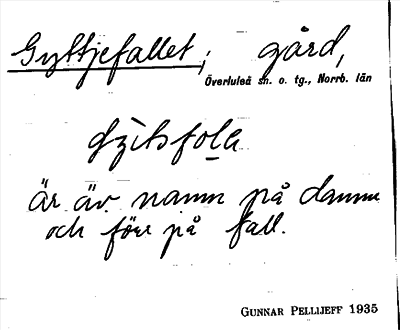 Gyltjefallet; gård,
Överluleå sn. o. tg., Norrb. län
är äv. namn på damm
och förr på fall.
GUNNAR PELLIJEFF 1935